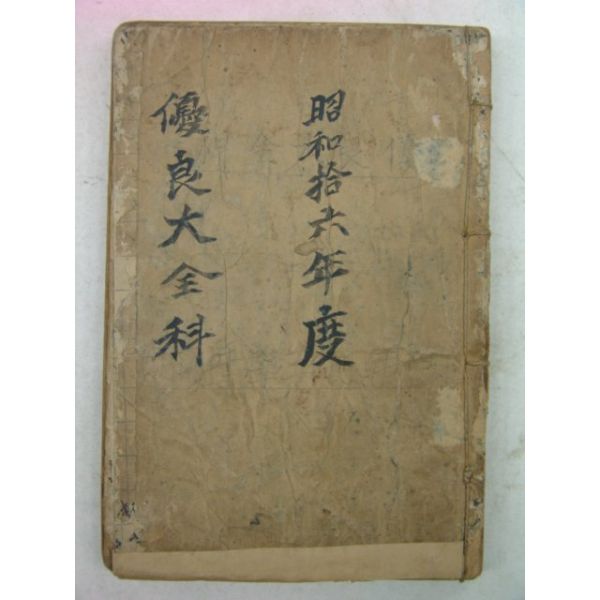 昭和拾六年度
優良大全科